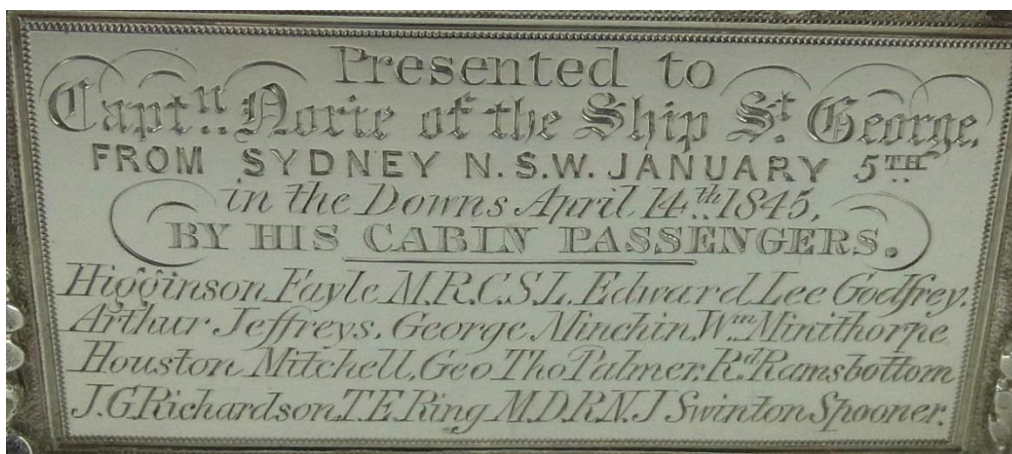 Presented to
Captn. Norie of the Ship St. George.
FROM SYDNEY N.S.W. JANUARY 5TH
in the Downs April 14th 1845,
BY HIS CABIN PASSENGERS.
Higginson Fayle M.R.C.S.L. Edward Lee Godfrey.
Arthur Jeffreys. George Minchin. Wm Minithorpe
Houston Mitchell. Geo Tho Palmer. Rd Ramsbottom
J.G. Richardson. T.E. Ring M.D.R.N. J Swinton Spooner.